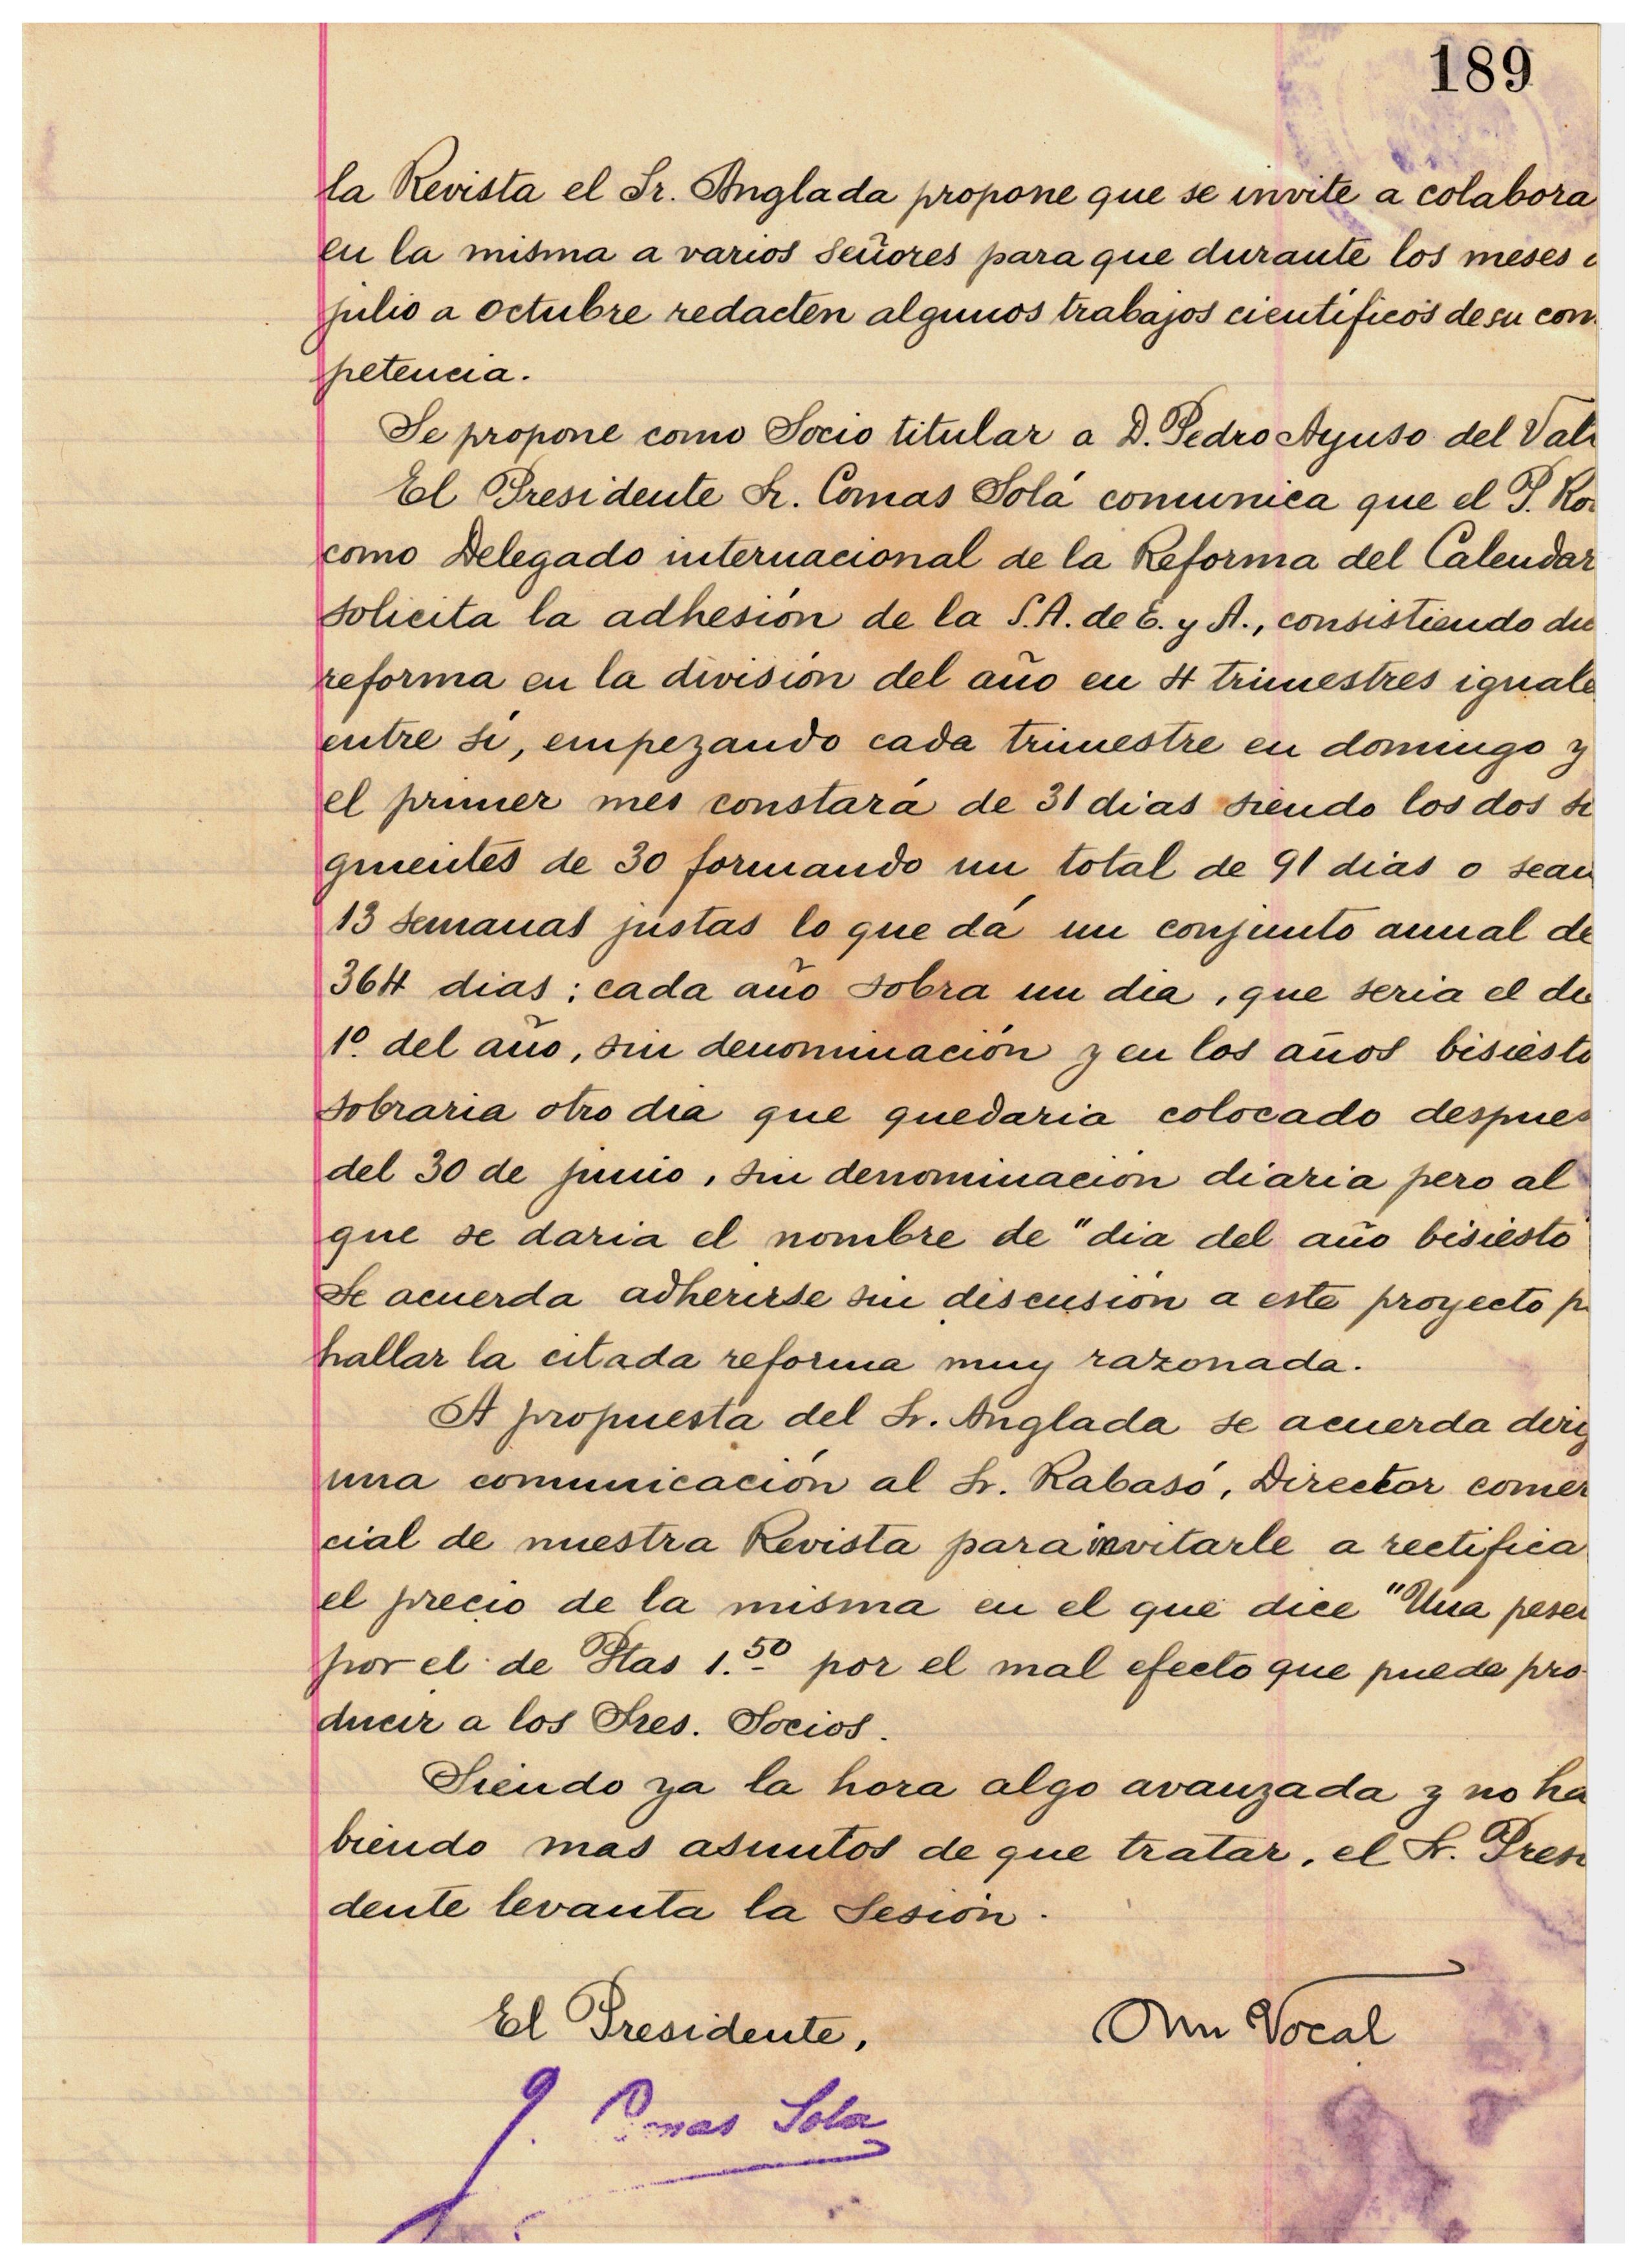 189
la Revista el Sr. Anglada propone que se invite a colabora
en la misma a varios señores para que durante los meses
julio a octubre redacten algunos trabajos científicos de su com
petencia.
Se propone como Socio titular a D. Pedro Ayuso del Vall
El Presidente Sr. Comas Solá comunica que el P. Ro
como Delegado internacional de la Reforma del Calendar
solicita la adhesión de la S.A. de E. y A., consistiendo
reforma en la división del año en 4 trimestres iguale
entre sí, empezando cada trimestre en domingo y
el primer mes constará de 31 dias siendo los dos si
guientes de 30 formando un total de 91 dias o sean
13 semanas justas lo que dá un conjunto anual de
364 dias; cada año sobra un dia, que seria el
1º. del año, sin denominación y en los años bisiesto
sobraria otro dia que quedaria colocado despues
del 30 de junio, sin denominacion diaria pero al
que se daria el nombre de "dia del año bisiesto"
Se acuerda adherirse sin discusión a este proyecto p
hallar la citada reforma muy razonada.
A propuesta del Sr. Anglada se acuerda dirig
una comunicación al Sr. Rabasó, Director comer
cial de nuestra Revista para invitarle a rectifica
el precio de la misma en el que dice "Una peset
por el de Ptas 1.50 por el mal efecto que puede pro-
ducir a los Sres. Socios.
Siendo ya la hora algo avanzada y no ha
biendo mas asuntos de que tratar, el Sr. Presi
dente levanta la Sesión.
El Presidente, Un Vocal
J. Comas Solá